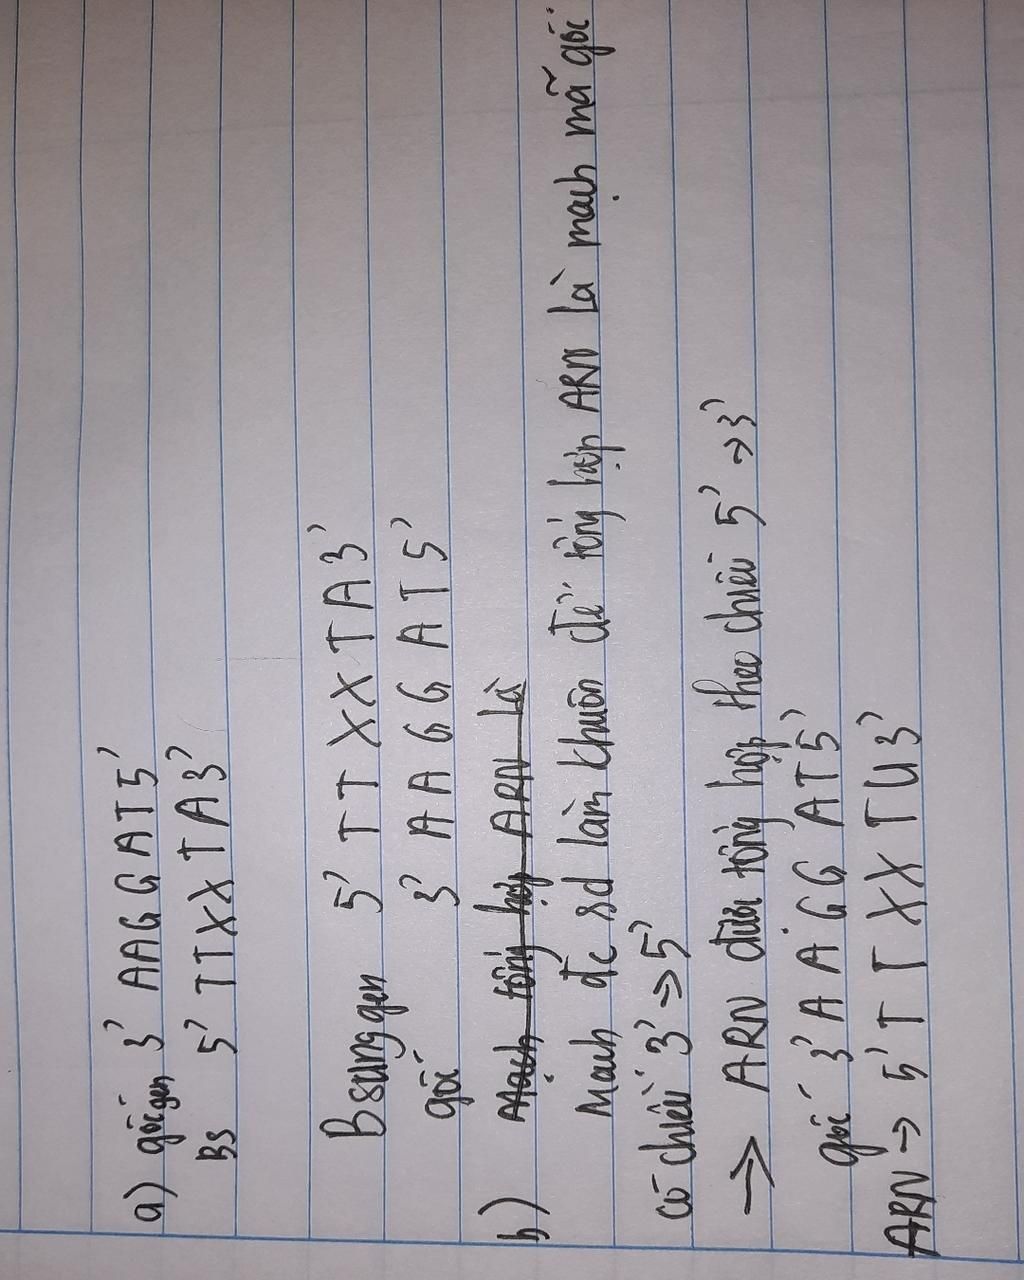 a) gốc gen 3' AAGGAT5'
Bs 5' TTXXTA3'
Bsung gen 5' TTXXTA3'
gốc 3' AAGGAT5'
b) Mạch tổng hợp ARN là
Mạch đc sd làm khuôn để tổng hợp ARN là mạch mã gốc
có chiều 3' → 5'
→ ARN được tổng hợp theo chiều 5' → 3'
gốc 3' A A G G A T 5'
ARN → 5' T T X X T U 3'